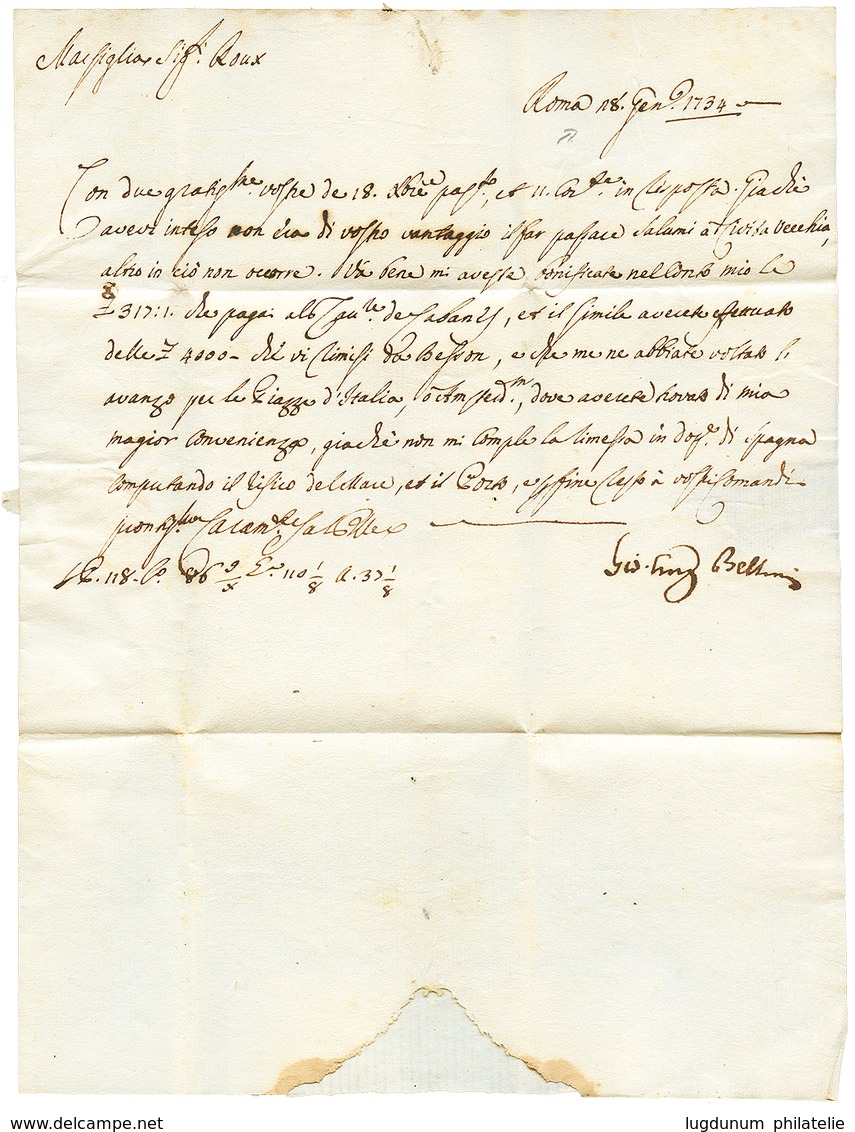 Marsiglia Sigri. Roux
Roma 18. Genro. 1734
Con due gratisme. vostre de 18. Xbre passto, et 11. Corte. in risposta. Giachè
avevi inteso non era di vostro vantaggio il far passare salumi à Civita Vecchia,
altro in ciò non occorre. Và bene mi avesse bonificate nel Conto mio le
317:1. che pagai al de Cabanes, et il simile averete effettuato
delle 4000- chè vi rimisi da Besson, e che me ne abbiate voltato l'
avanzo per le Piazze d'Italia, ò Amsterdm, dove averete trovato di mia
magior convenienza, giachè non mi comple la rimessa in dopie. di Spagna
computando il risico del Mare, et il Porto, e per fine resto à vostri Comandi
L. 118. P. 86 110 1/8 A. 37 1/8
Gio. Bellini
delcampe.net
lugdunum philatelie